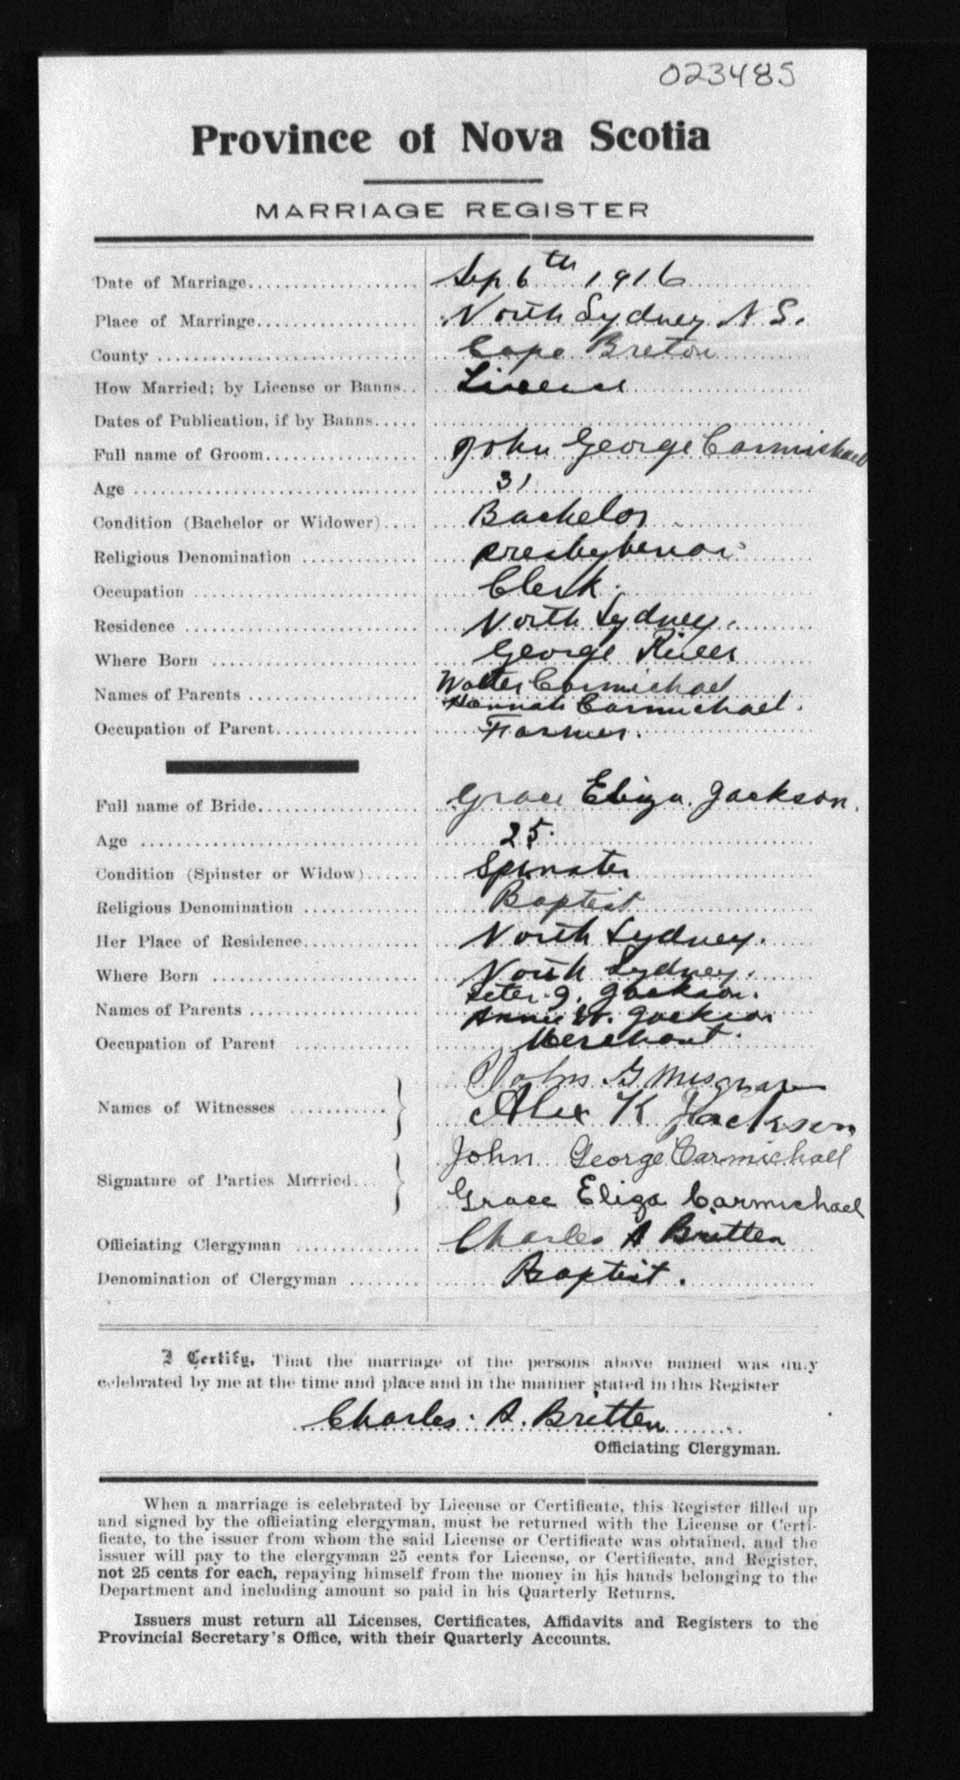 023485
Province of Nova Scotia
MARRIAGE REGISTER
Date of Marriage Sep 6th 1916
Place of Marriage North Sydney N S.
County Cape Breton
How Married; by License or Banns License
Dates of Publication, if by Banns
Full name of Groom John George Carmichael
Age 31
Condition (Bachelor or Widower) Bachelor
Religious Denomination Presbyterian
Occupation Clerk.
Residence North Sydney.
Where Born George River
Names of Parents Walter Carmichael
Hannah Carmichael.
Occupation of Parent Farmer.
Full name of Bride Grace Eliza Jackson.
Age 25
Condition (Spinster or Widow) Spinster
Religious Denomination Baptist
Her Place of Residence North Sydney.
Where Born North Sydney.
Names of Parents Peter J. Jackson.
Annie W. Jackson
Occupation of Parent Merchant.
John G Musgrave
Names of Witnesses Alex K Jackson
John George Carmichael
Signature of Parties Married
Grace Eliza Carmichael
Officiating Clergyman Charles A Britten
Denomination of Clergyman Baptist.
I Certify, That the marriage of the persons above named was duly
celebrated by me at the time and place and in the manner stated in this Register
Charles. A. Britten
Officiating Clergyman.
When a marriage is celebrated by License or Certificate, this Register filled up
and signed by the officiating clergyman, must be returned with the License or Certi-
ficate, to the issuer from whom the said License or Certificate was obtained, and the
issuer will pay to the clergyman 25 cents for License, or Certificate, and Register,
not 25 cents for each, repaying himself from the money in his hands belonging to the
Department and including amount so paid in his Quarterly Returns.
Issuers must return all Licenses, Certificates, Affidavits and Registers to the
Provincial Secretary's Office, with their Quarterly Accounts.